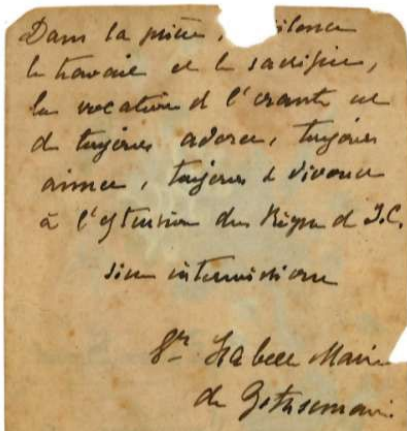 Dans la prière, silence
le travail et le sacrifice,
la vocation de l'orante est
de toujours adorer, toujours
aimer, toujours se dévouer
à l'extension du Règne de J.C.
sine intermissione
Sr Isabelle Marie
de Gethsemani